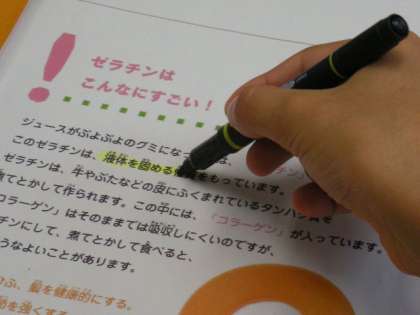 ゼラチンは
こんなにすごい!
ジュースがぷよぷよのグミにな
このゼラチンは、液体を固める をもっています。
ゼラチンは、牛やぶたなどの皮にふくまれているタンパク質を
煮てとかして作られます。この中には、「コラーゲン」が入っています。
コラーゲン」はそのままでは吸収しにくいのですが、
チンにして、煮てとかして食べると、
うなよいことがあります。
ぶ、髪を健康的にする。
を強くする。